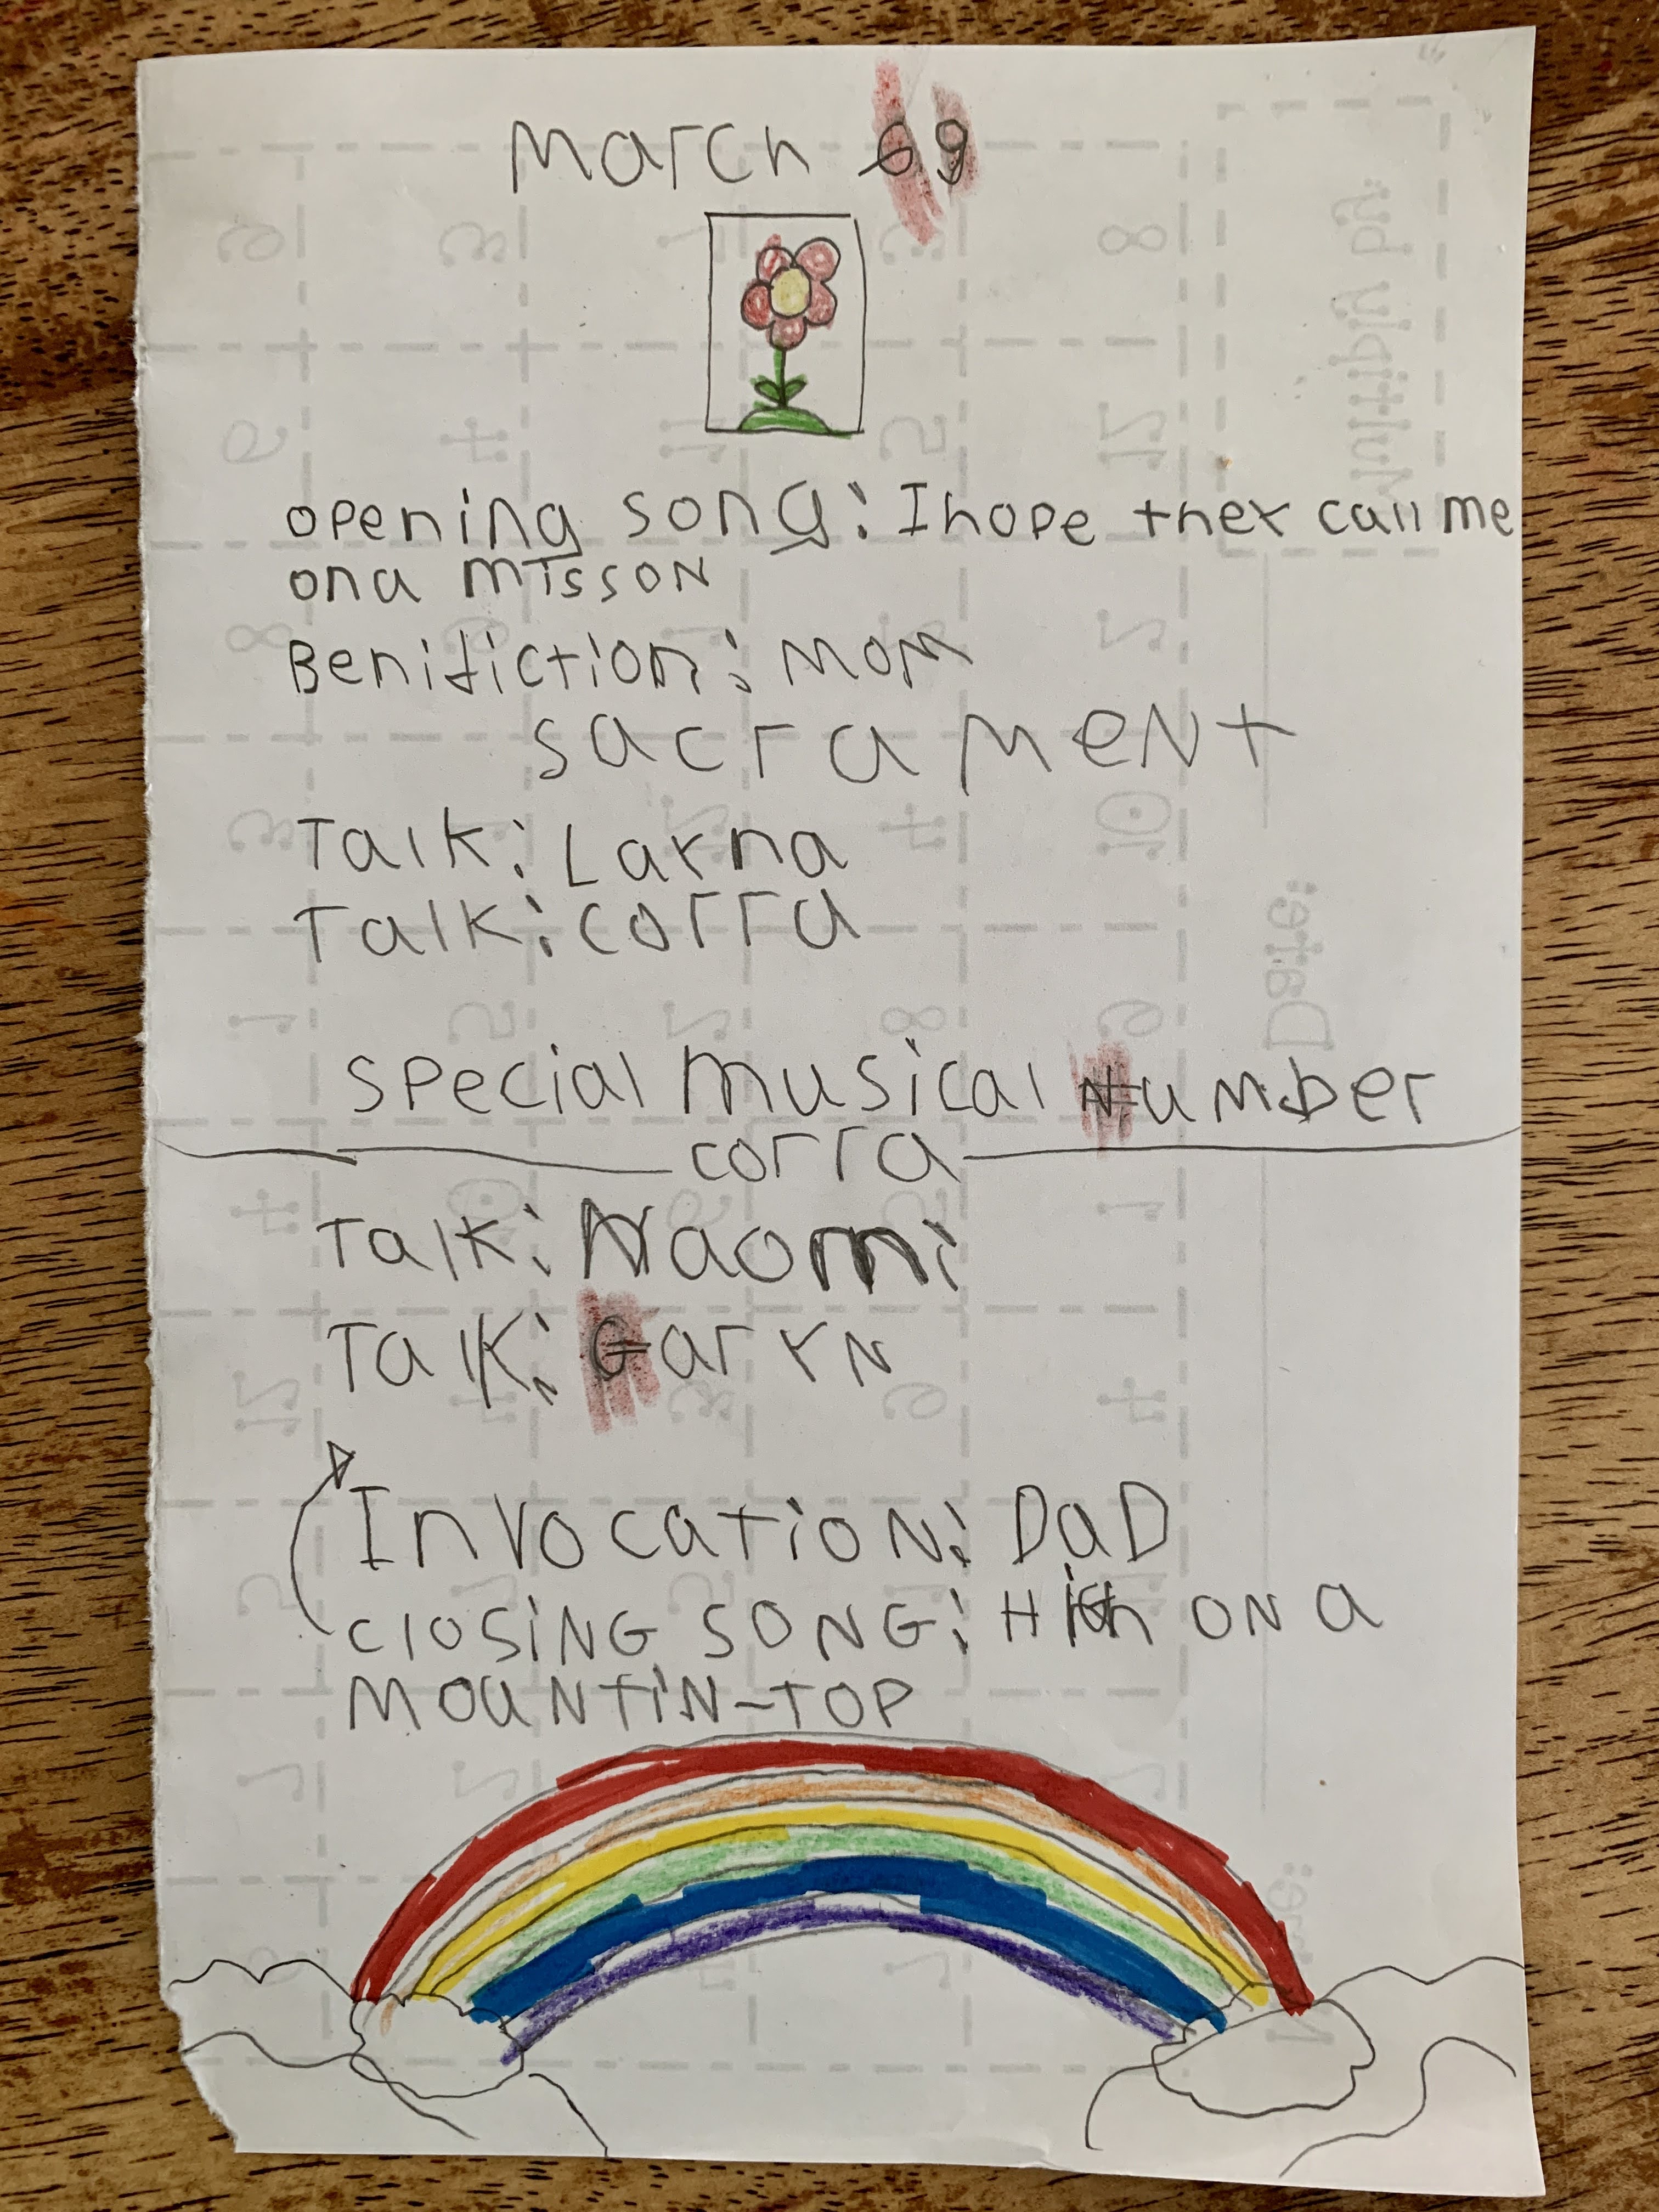 March 09
opening song: I hope they call me
on a mIsson
Benifiction: mom
sacrament
Talk: Layna
Talk: corra
special musical Number
corra
Talk: Naomi
Talk: Garyn
Invocation: DaD
closiNG SONG: High ON a
mouNtiN-TOP
Multiply by:
Date: